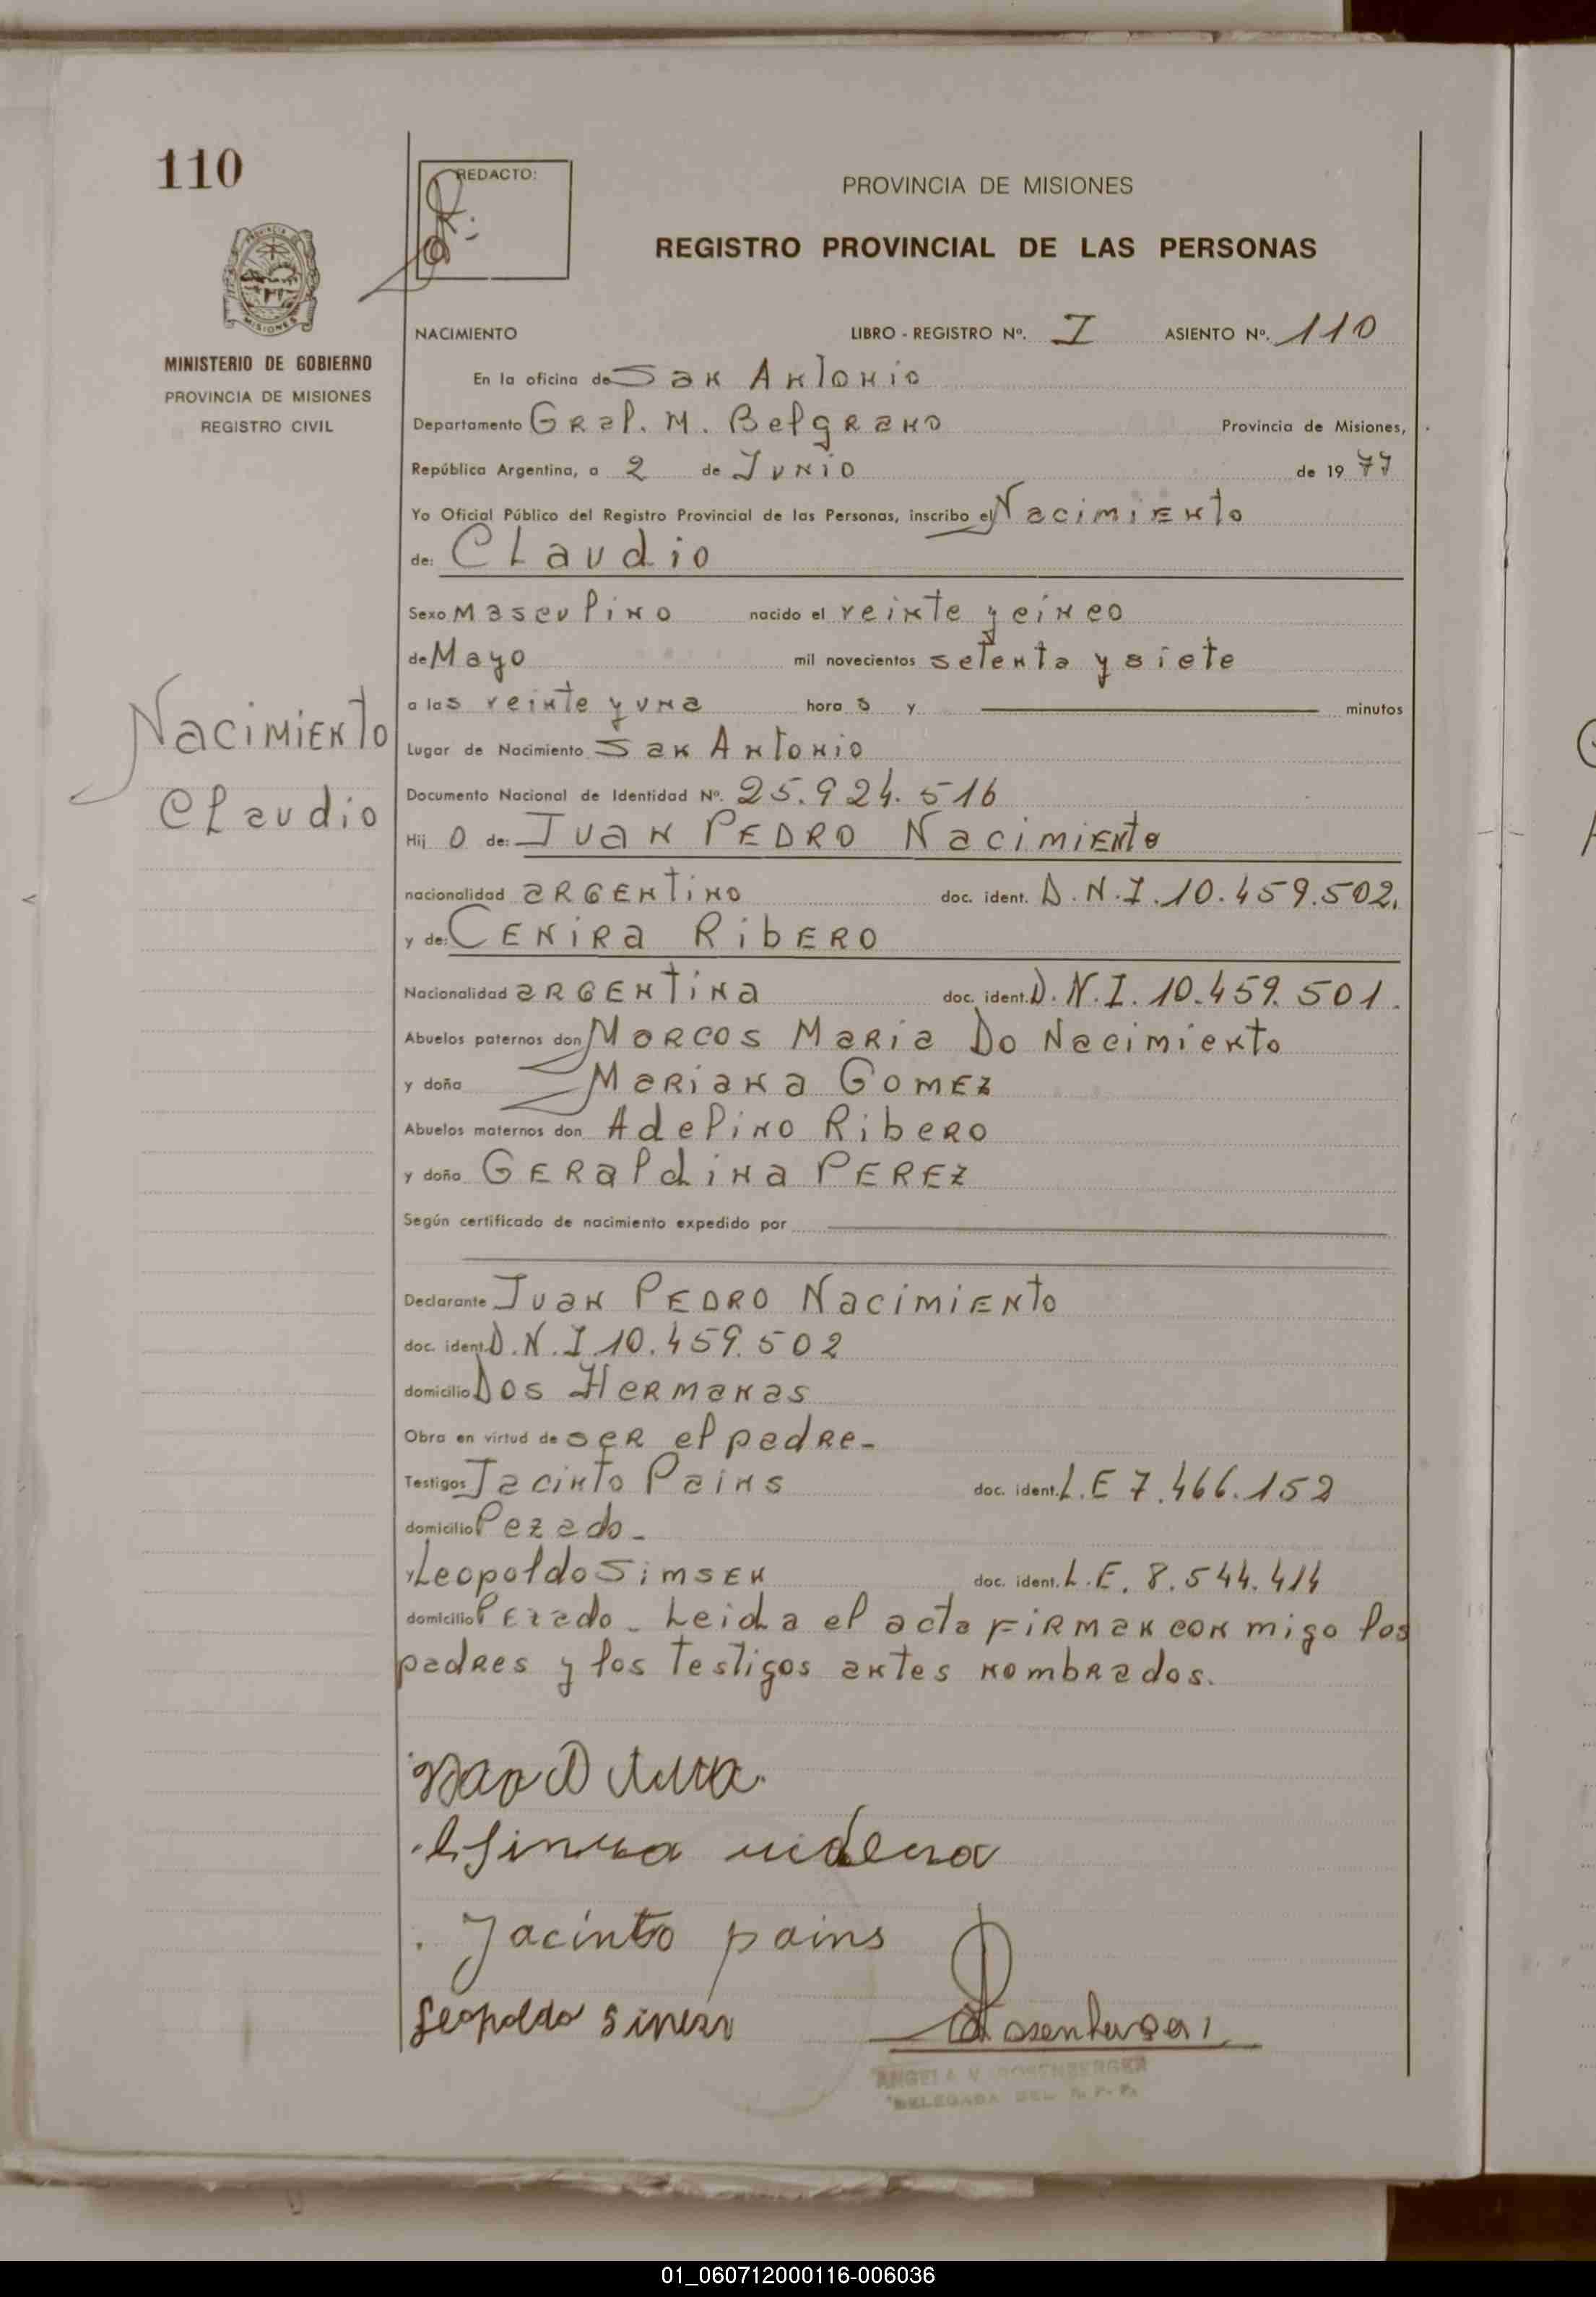 110
REDACTO:
PROVINCIA DE MISIONES
REGISTRO PROVINCIAL DE LAS PERSONAS
MISIONES
MINISTERIO DE GOBIERNO
PROVINCIA DE MISIONES
REGISTRO CIVIL
NACIMIENTO LIBRO - REGISTRO Nº. I ASIENTO Nº. 110
En la oficina de San Antonio
Departamento Gral. M. Belgrano Provincia de Misiones,
República Argentina, a 2 de Junio de 1977
Yo Oficial Público del Registro Provincial de las Personas, inscribo el Nacimiento
de: Claudio
Sexo Masculino nacido el veinte y cinco
de Mayo mil novecientos setenta y siete
a las veinte y una hora s y minutos
Nacimiento
Claudio
Lugar de Nacimiento San Antonio
Documento Nacional de Identidad Nº. 25.924.516
Hij o de: Juan Pedro Nacimiento
nacionalidad argentino doc. ident. D.N.I. 10.459.502.
y de: Cenira Ribero
Nacionalidad argentina doc. ident. D.N.I. 10.459.501.
Abuelos paternos don Marcos Maria Do Nacimiento
y doña Mariana Gomez
Abuelos maternos don Adelino Ribero
y doña Geraldina Perez
Según certificado de nacimiento expedido por
Declarante Juan Pedro Nacimiento
doc. ident. D.N.I 10.459.502
domicilio Dos Hermanas
Obra en virtud de ser el padre-
Testigos Jacinto Pains doc. ident. L.E 7.466.152
domicilio Pezado-
y Leopoldo Simsen doc. ident. L.E. 8.544.414
domicilio Pezado- Leida el acta firman con migo los
padres y los testigos antes nombrados.
Jacinto pains
Leopoldo
Rosenberger
ANGELA V. ROSENBERGER
DELEGADA DEL R. P. P.
01_060712000116-006036